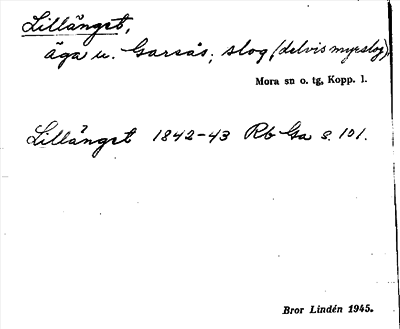 Lillängst,
äga u. Garsås; slog (delvis myrslog)
Mora sn o. tg, Kopp. l.
Lillängst 1842-43 Rb Ga s. 101.
Bror Lindén 1945.